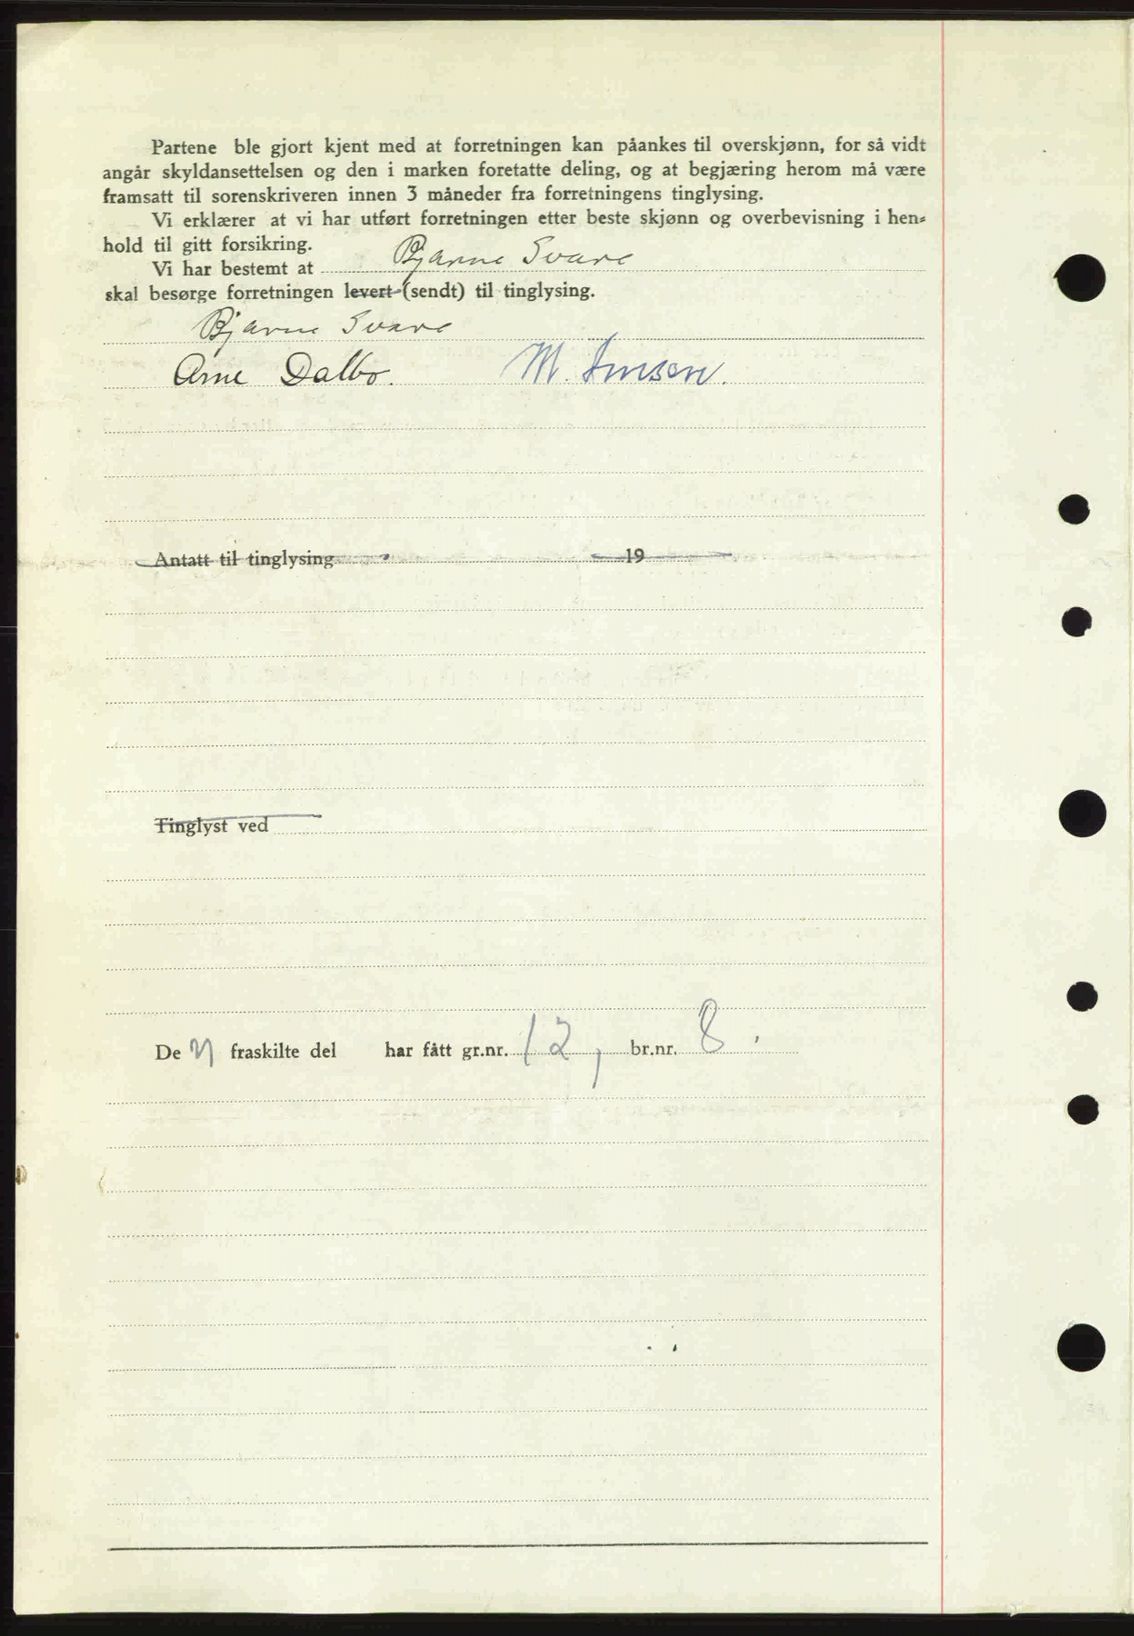 Partene ble gjort kjent med at forretningen kan påankes til overskjønn, for så vidt
angår skyldansettelsen og den i marken foretatte deling, og at begjæring herom må være
framsatt til sorenskriveren innen 3 måneder fra forretningens tinglysing.
Vi erklærer at vi har utført forretningen etter beste skjønn og overbevisning i hen=
hold til gitt forsikring.
Vi har bestemt at Bjarne Svare
skal besørge forretningen levert (sendt) til tinglysing.
Bjarne Svare
Arne Dalbo. M.
Antatt til tinglysing 19
Tinglyst ved
De n fraskilte del har fått gr.nr. 12, br.nr. 8.